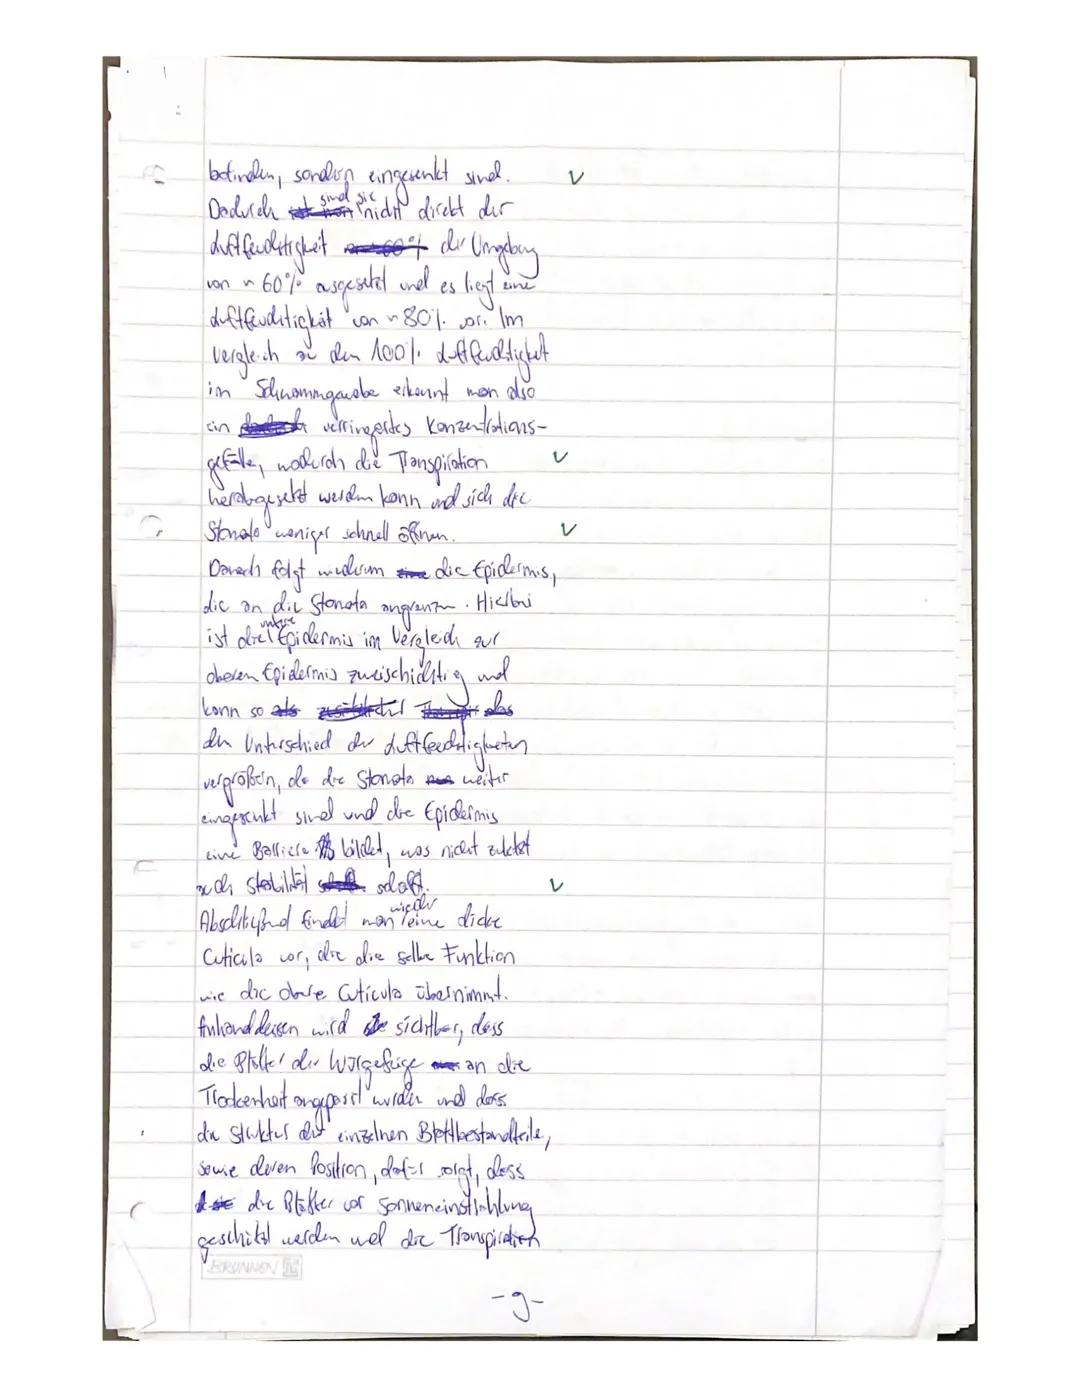 befinden, sondern eingesenkt sind.
Dadurch sind sie nicht direkt der
Luftfeuchtigkeit der Umgebung
von ~ 60% ausgesetzt und es liegt eine
Luftfeuchtigkeit von ~ 80% vor. Im
Vergleich zu den 100% Luftfeuchtigkeit
im Schwammgewebe erkennt man also
ein verringertes Konzentrations-
gefälle, wodurch die Transpiration
herabgesetzt werden kann und sich die
Stomata weniger schnell öffnen.
Danach folgt wiederum die Epidermis,
die an die Stomata angrenzen. Hierbei
ist die untere Epidermis im Vergleich zur
oberen Epidermis zweischichtig und
kann so
den Unterschied der Luftfeuchtigkeiten
vergrößern, da die Stomata weiter
eingesenkt sind und die Epidermis
eine Barriere bildet, was nicht zuletzt
auch Stabilität schafft.
Abschließend findet man wieder eine dicke
Cuticula vor, die die selbe Funktion
wie die obere Cuticula übernimmt.
Anhand dessen wird sichtbar, dass
die Blätter der Würgefeige an die
Trockenheit angepasst wurden und dass
die Struktur der einzelnen Blattbestandteile,
sowie deren Position, dafür sorgt, dass
die Blätter vor Sonneneinstrahlung
geschützt werden und die Transpiration
BRUNNEN
-9-